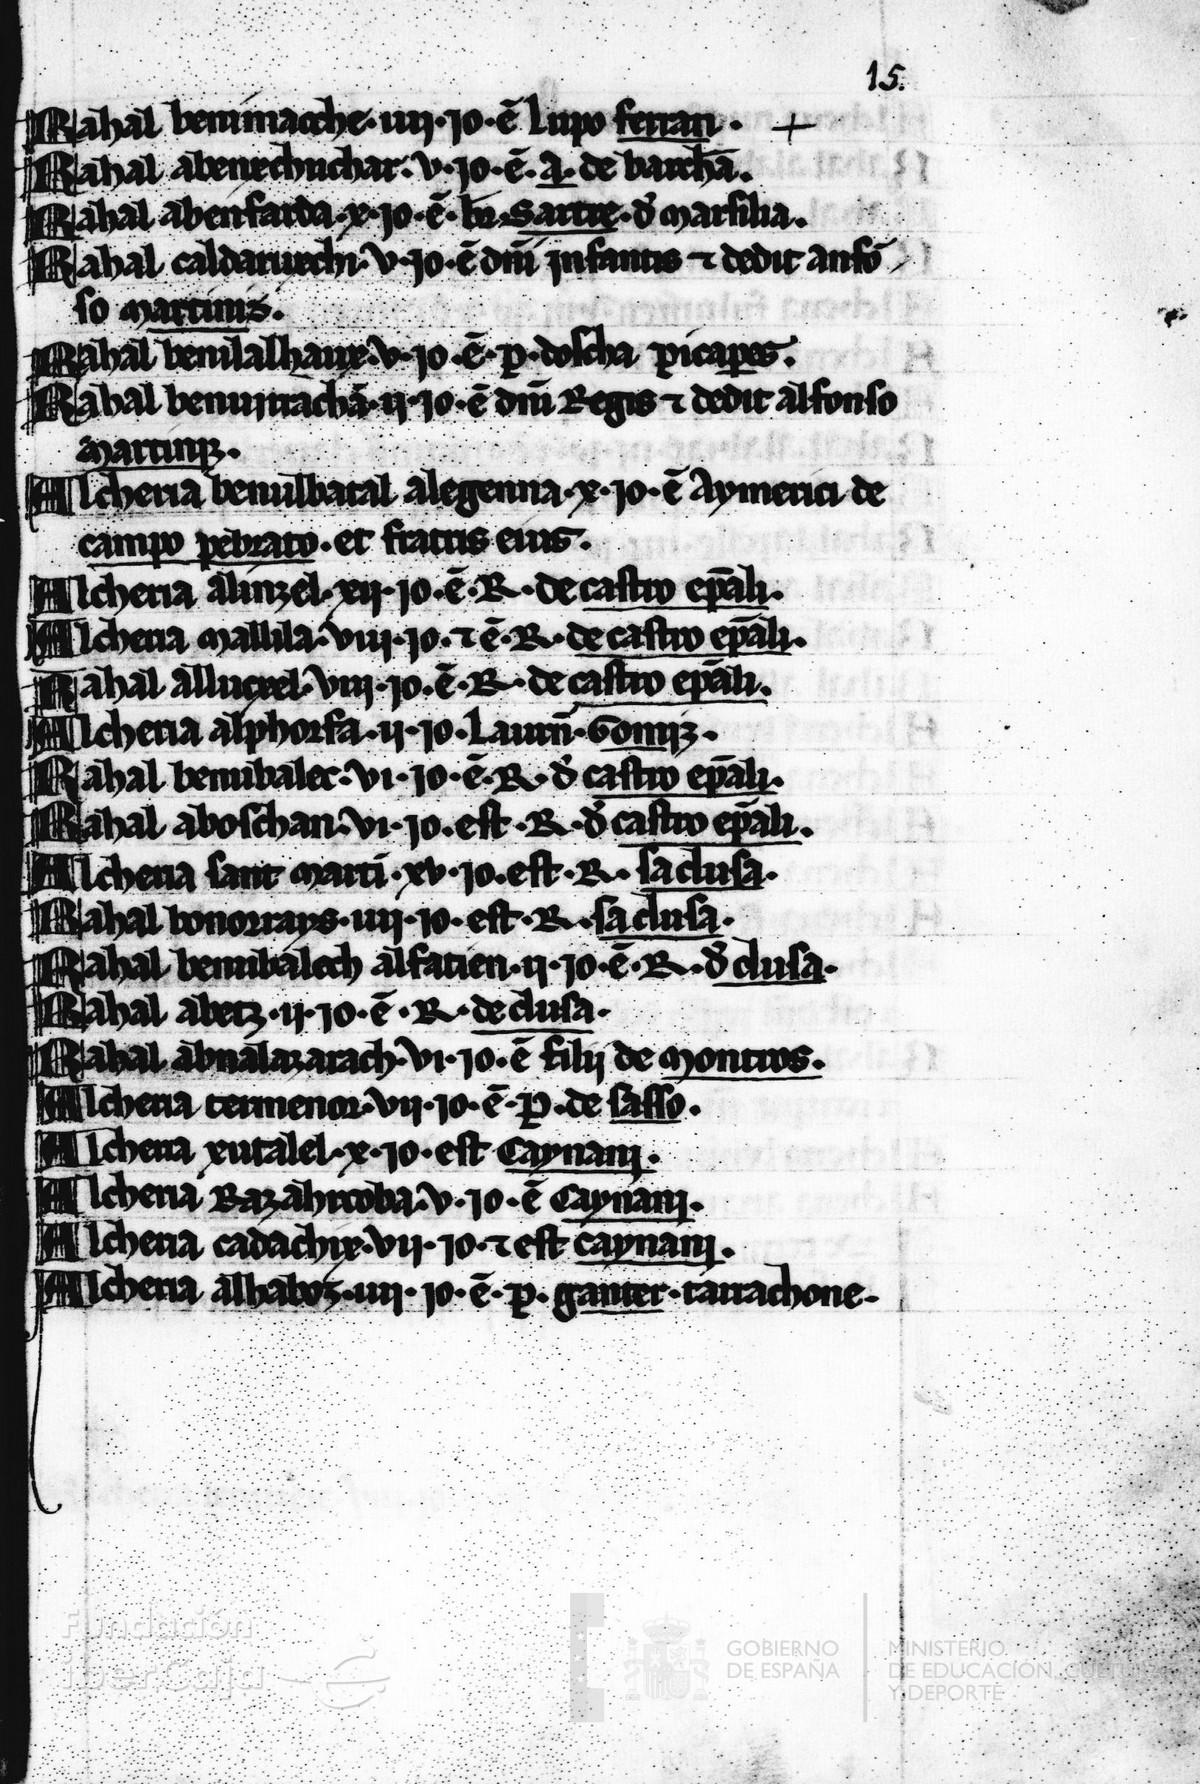 15.
Rahal benimacche· iiij· jo· ē Lupo ferrari · +
Rahal abenechuchar· v· jo· ē· A· de barchā.
Rahal abenfarda· x· jo· ē· br· Sartre· d' marsilia.
Rahal caldaruechi· v· jo· ē dm̄ infantis ⁊ dedit anfō
so martiniz.
Rahal benilalhaux· v· jo· ē· p· dolcha picaperes.
Rahal benurrachā· ij· jo· ē dm̄ Regis ⁊ dedit alfonso
martiniz.
Alcheria benulbatal alegenna· x· jo· ē Aymerici de
campo pebrato· et fratris eius.
Alcheria alinzel· xij· jo· ē· R· de castro ep̄ali.
Alcheria mallila· viii· jo· ⁊ ē· R· de castro ep̄ali.
Rahal allucxel· viij· jo· ē· R· de castro ep̄ali.
Alcheria alphorfa· ij· jo· Laurn̄· Gomiz.
Rahal benibalec· vi· jo· ē· R· d' castro ep̄ali.
Rahal aboschan· vi· jo· est· R· d' castro ep̄ali.
Alcheria sant martī· xv· jo· est· R· sa clusa.
Rahal bonorrays· iiij· jo· est· R· sa clusa.
Rahal benibalech alfatien· ij· jo· ē· R· d' clusa.
Rahal abetz· ij· jo· ē· R· de clusa.
Rahal abnalazarach· vi· jo· ē filij de montros.
Alcheria termenor· vij· jo· ē· P· de sasso.
Alcheria xutalel· x· jo· est Caynani.
Alcheria Bazahrcoba· v· jo· ē Caynani.
Alcheria cadachix· vij· jo· ⁊ est caynani.
Alcheria alhaboz· iiij· jo· ē· p· ganter· tarrachone.
Fundación
iberCaja
GOBIERNO
DE ESPAÑA
MINISTERIO
DE EDUCACIÓN, CULTURA
Y DEPORTE